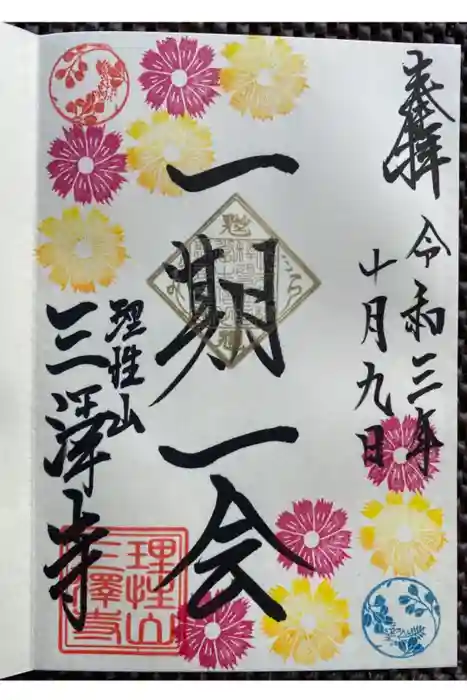 奉拝
令和三年
十月九日
一期一会
理性山
三澤寺
理性山
三澤寺